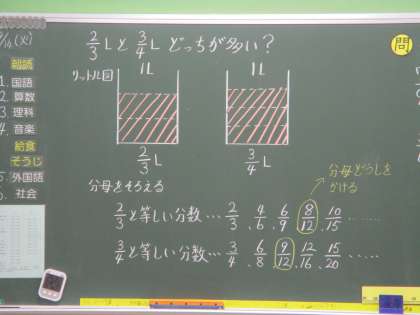 2/3 Lと 3/4 L どっちが多い？
問
(火)
朝読
1. 国語
2. 算数
3. 理科
4. 音楽
給食
そうじ
5. 外国語
6. 社会
リットル図
1L
1L
2/3 L
3/4 L
分母をそろえる
分母どうしを
かける
2/3 と等しい分数… 2/3、4/6、6/9、8/12、10/15……
3/4 と等しい分数… 3/4、6/8、9/12、12/16、15/20……